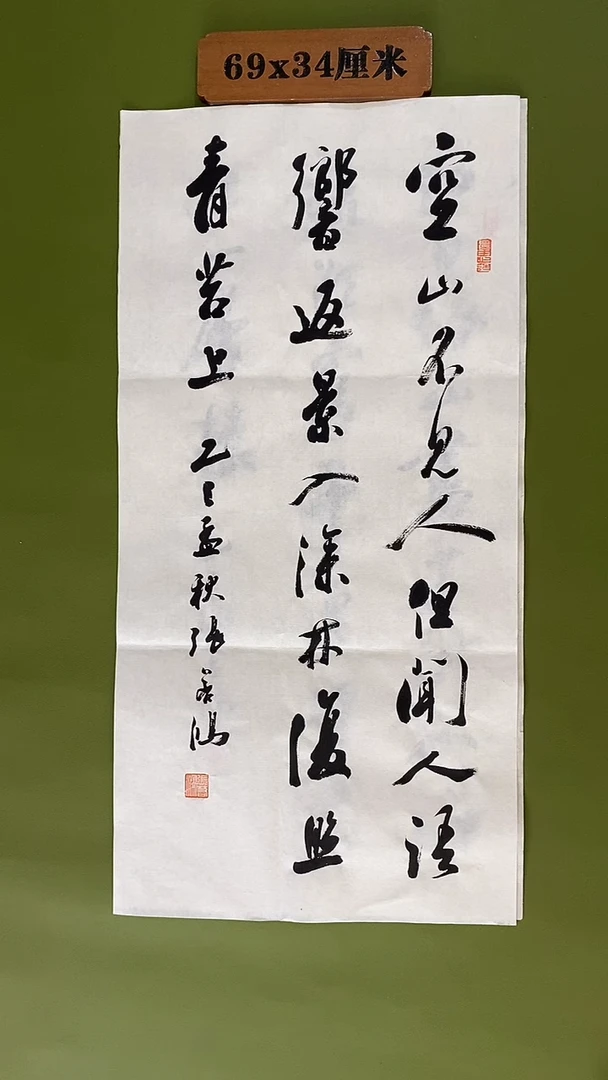 69x34厘米
空山不見人但聞人語
響返景入深林復照
青苔上 乙巳孟秋張若鴻